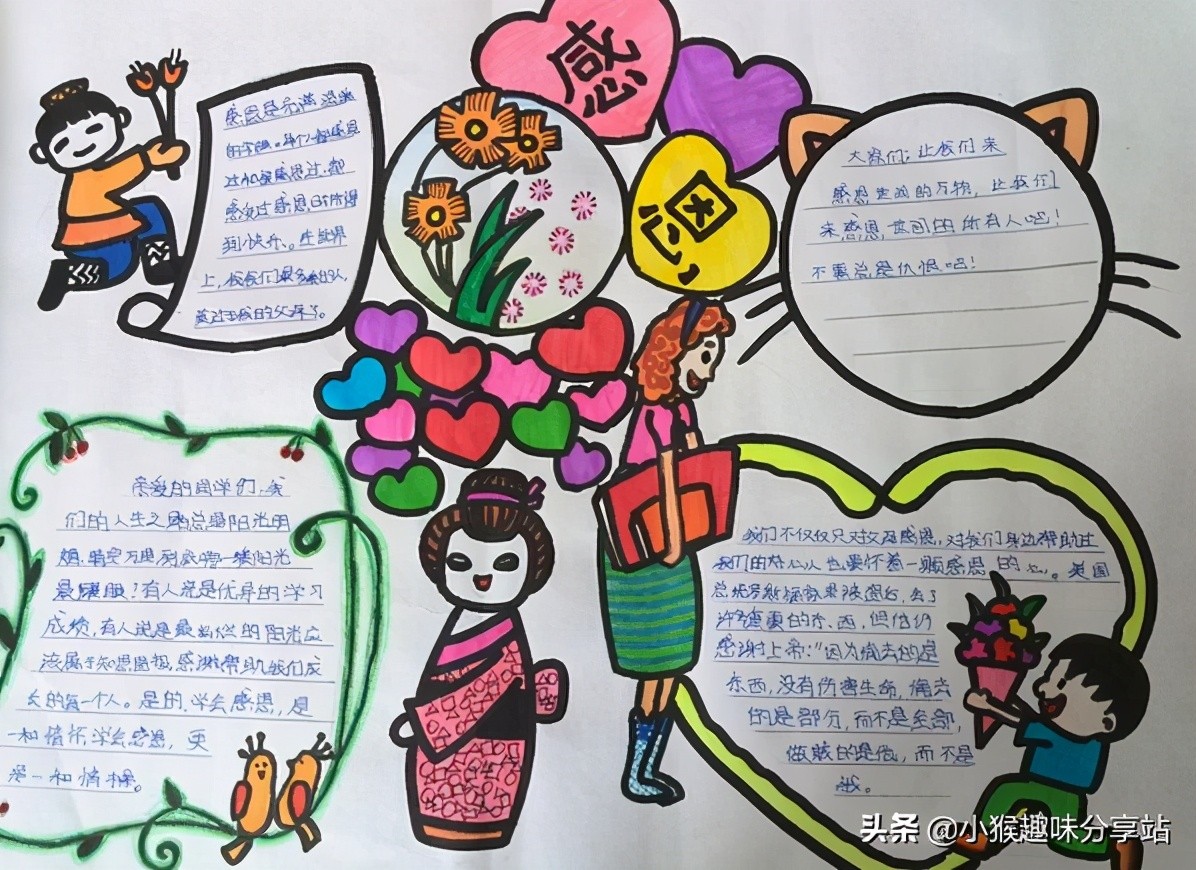 感
恩
感恩是充满温暖
的字眼。每个人都感恩
过和被感恩过,都
感受过感恩时所得
到快乐。生世界
上,
大家们:让我们来
感恩世间的万物,让我们
来感恩世间的所有人吧!
不要总是仇恨吧!
亲爱的同学们,我
们的人生之路总是阳光明
媚、晴空万里,到底哪一缕阳光
最耀眼?有人说是优异的学习
成绩,有人说是最
该属于知恩图报,感谢帮助我们成
长的每一个人。是的,学会感恩,是
一种情怀,学会感恩,更
是一种情操。
我们不仅仅只对父母感恩,对我们身边帮助过
我们的 人也要怀着一颗感恩的心。美国
总统罗斯福 家被盗后,丢了
许多重要的东西,但他仍
感谢上帝:“因为偷去的是
东西,没有伤害生命,偷去
的是部分,而不是全部,
做贼的是他,而不是
我。
头条 @小猴趣味分享站